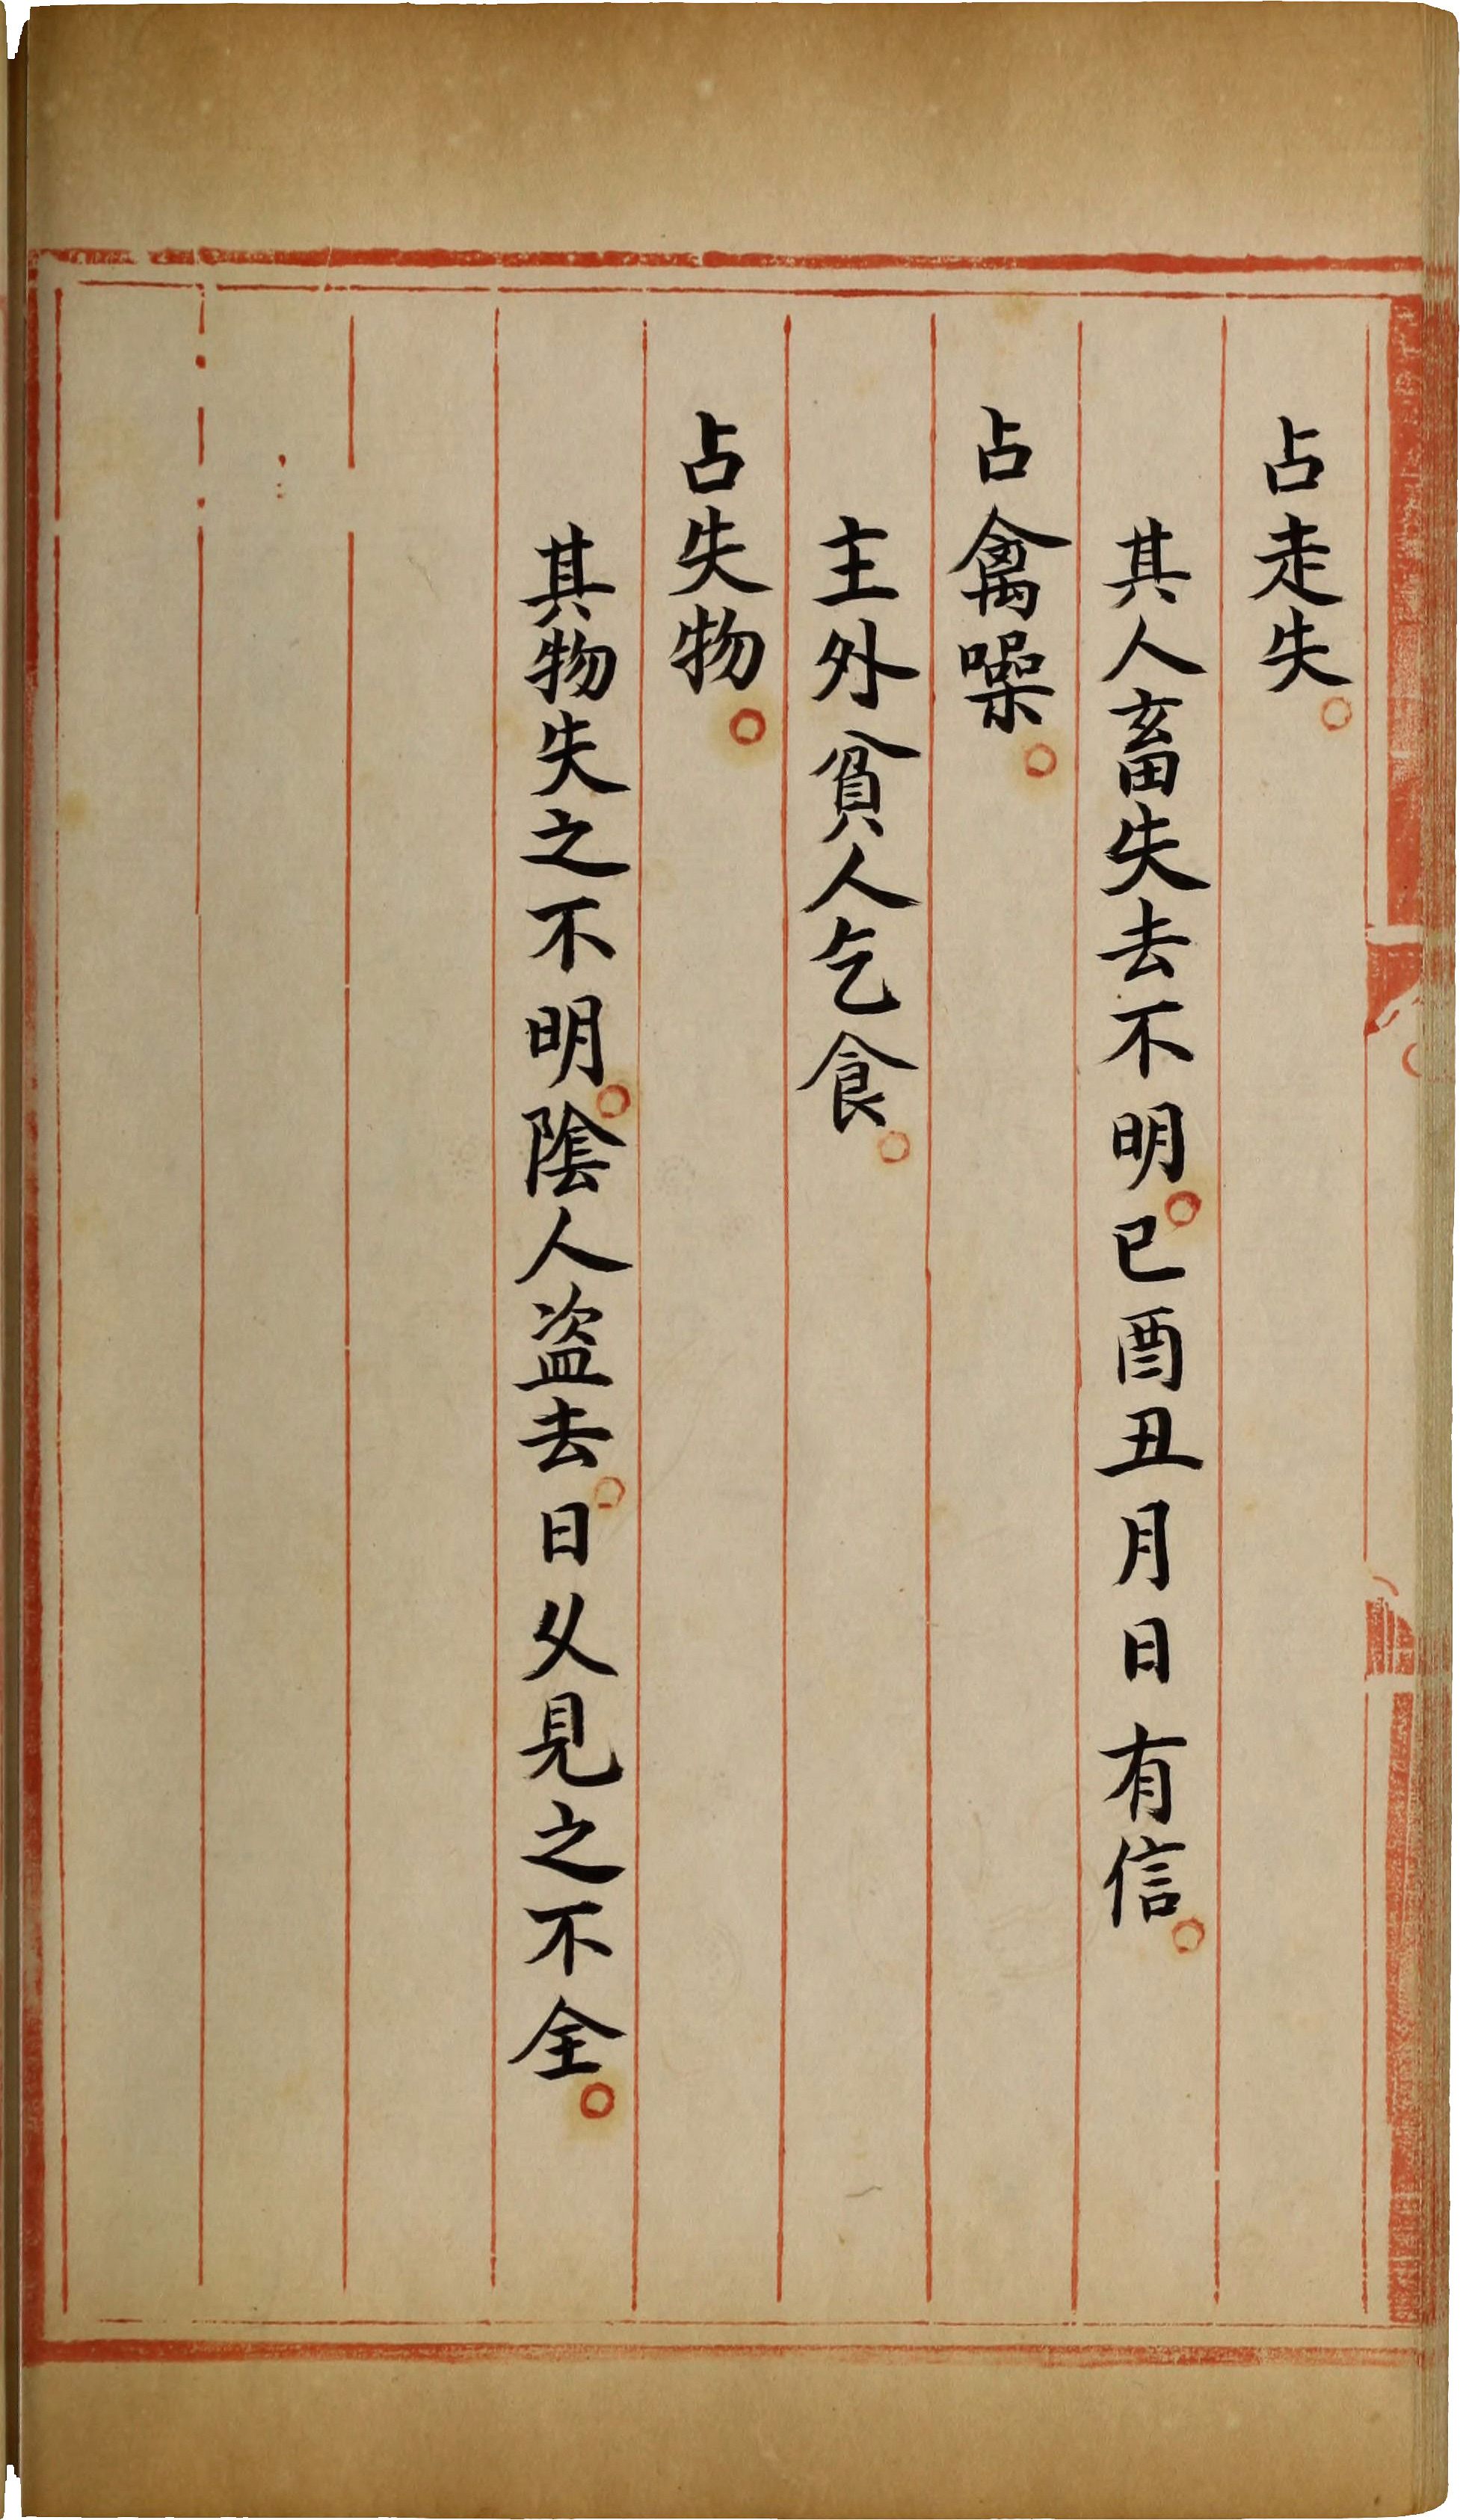 占走失。
其人畜失去不明。巳酉丑月日有信。
占禽噪。
主外貧人乞食。
占失物。
其物失之不明。陰人盜去。日久見之不全。